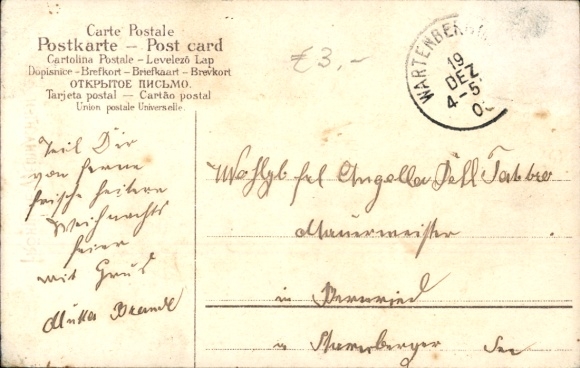 Carte Postale
Postkarte – Post card
Cartolina Postale – Levelező Lap
Dopisnice – Brefkort – Briefkaart – Brevkort
ОТКРЫТОЕ ПИСЬМО.
Tarjeta postal — Cartão postal
Union postale Universelle.
€3,-
WARTENBERG
19
DEZ
4-5
0
von ferne
frische heitere
Weihnachts
feier
mit Gruß
Wohlgb
Mauermeister
in Bernried
a Starnberger See